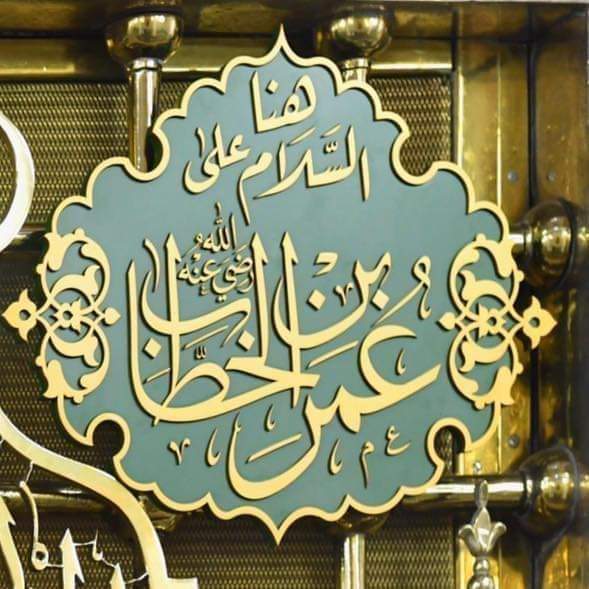 هنا
السَّلَام على
عُمَر بْن الخطَّاب
رَضِيَ اللّٰه عَنْهُ